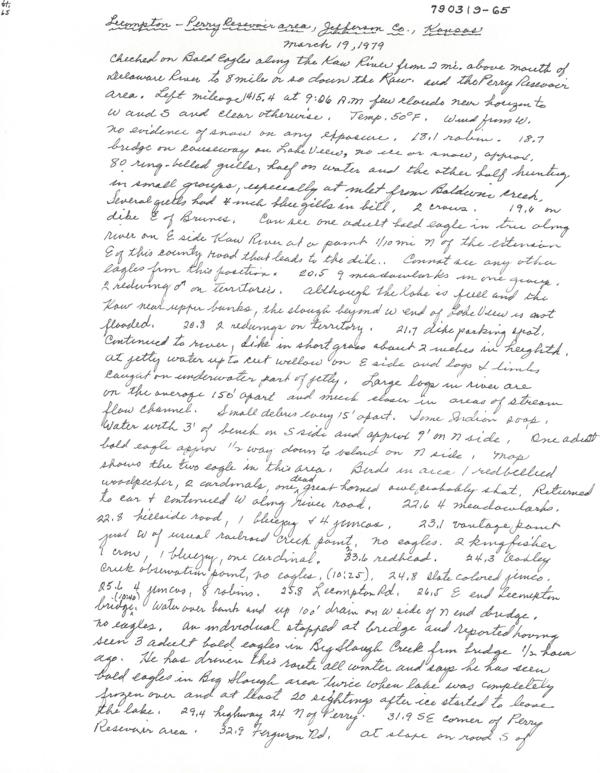 61,
65
790319-65
Lecompton - Perry Resevoir area, Jefferson Co., Kansas
March 19, 1979
Checked on Bald Eagles along the Kaw River from 2 mi. above mouth of
Delaware River to 8 miles or so down the Kaw. and the Perry Resevoir
area. Left mileage 1415.4 at 9:06 A.M few clouds near horizon to
W and S and clear otherwise. Temp. 50°F. Wind from W.
no evidence of snow on any exposure. 18.1 robin. 18.7
bridge on causeway on Lake View, no ice or snow, approx.
80 ring-billed gulls, half on water and the other half hunting
in small groups, especially at inlet from Baldwin Creek.
Several gulls had 4 inch blue gills in bill, 2 crows. 19.6 on
dike E of Brunes. Can see one adult bald eagle in tree along
river on E side Kaw River at a point 1/10 mi N of the extension
E of this county road that leads to the dike.. Cannot see any other
eagles from this position. 20.5 9 meadowlarks in one group.
2 redwing ♂ on territories. Although the lake is full and the
Kaw near upper banks, the slough beyond W end of Lake View is not
flooded. 20.8 2 redwings on territory. 21.7 dike parking spot.
Continued to river, dike in short grass about 2 inches in heighth.
at jetty water up to cut willow on E side and logs & limbs
caught on underwater part of jetty. Large logs in river are
on the average 150' apart and much closer in areas of stream
flow channel. Small debris every 15' apart. Some Indian soap.
Water with 3' of bench on S side and approx 9' on N side. One adult
bald eagle approx 1/2 way down to island on N side, map
shows the two eagle in this area. Birds in area 1 redbellied
woodpecker, 2 cardinals, one dead great horned owl, probably shot. Returned
to car & continued W along river road. 22.6 4 meadowlarks.
22.8 hillside road, 1 bluejay & 4 juncos. 23.1 vantage point
just W of usual railroad creek point, no eagles. 2 kingfisher
1 crow, 1 bluejay, one cardinal. 23.6 redhead. 24.3 Oakley
Creek observation point, no eagles, (10:25). 24.8 slate colored junco.
25.6 4 juncos, 8 robins. 25.8 Lecompton Rd. 26.5 E end Lecompton
bridge. (10:40) Water over bank and up 100' drain on W side of N end bridge.
no eagles. An individual stopped at bridge and reported having
seen 3 adult bald eagles in Big Slough Creek from bridge 1/2 hour
ago. He has driven this route all winter and says he has seen
bald eagles in Big Slough area twice when lake was completely
frozen over and at least 20 sightings after ice started to leave
the lake. 29.4 highway 24 N of Perry. 31.9 SE corner of Perry
Resevoir area. 32.9 Ferguson Rd. at slope on road S of